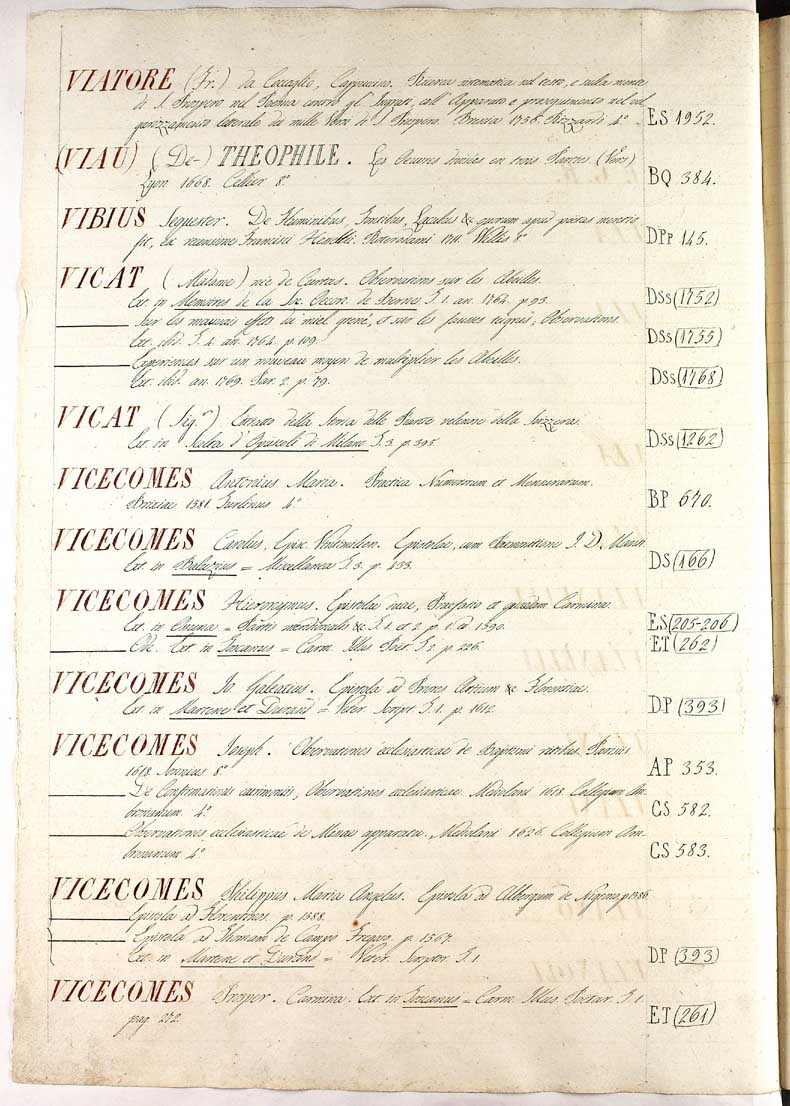 VIATORE (Fr.) da Coccaglio, Cappucino. Ricerca sistematica sul testo, e sulla mente
di S. Prospero nel Poema contro gl' Ingrati, coll' Apparato e proseguimento nel vol
garizzamento literale dei mille Versi di S. Prospero. Brescia 1756. Rizzardi 4° ES 1952.
(VIAU) (De-) THEOPHILE. Les Oeuvres divisées en trois Parties. (Vers)
Lyon 1668. Cellier 8° BQ 384.
VIBIUS Sequester. De Fluminibus, Fontibus, Lacubus &c quorum apud poetas mentio
fit, ex recensione Francisci Hesselii. Roterodami 1711. 8° DPp 145.
VICAT (Madame) née de Curtas. Observations sur les Abeilles.
Ext. in Memoires de la Soc. Oecon. de Berne T. 1. an. 1764. p. 93. DSs (1752)
Sur les mauvais effets du miel grené, et sur les fausses teignes; Observations.
Ext. ibid. T. 4. an. 1764. p. 109 DSs (1755)
Experiences sur un nouveau moyen de multiplier les Abeilles.
Ext. ibid. an. 1769. Par. 2. p. 79. DSs (1768)
VICAT (Sig.r) Estratto della Storia delle Piante velenose della Svizzera.
Ext. in Scelta d' Opuscoli di Milano T. 3. p. 395. DSs (1262)
VICECOMES Antonius Maria. Practica Numerorum et Mensurarum.
Brixiae 1581 4° BP 670.
VICECOMES Carolus, Epix. Epistolae, cum J. D.
Ext. in Baluzius = Miscellanea T. 3. p. 433. DS (166)
VICECOMES Hieronymus. Epistolae duae, Praefatio et quaedam Carmina.
Ext. in = Partis meridionalis &c T. 1. et 2. p. 1. ad 1590. ES (205-206)
Ode. Ext. in = Carm. Illus. Poët. T. 2. p. 226. ET (262)
VICECOMES Jo Galeatius. Epistola ad Priores Artium &c Florentiae.
Ext. in Martene et Durand = Veter. Script. T. 1. p. 1612. DP (393)
VICECOMES Joseph. Observationes ecclesiasticae de Baptismi ritibus. Parisiis
1618. Sonnius 8° AP 353.
De Confirmationis caerimoniis; Observationes ecclesiasticae. Mediolani 1618. Collegium Am-
brosianum. 4° CS 582.
Observationes ecclesiasticae de Missae apparatu. Mediolani 1626. Collegium Am-
brosianum 4° CS 583.
VICECOMES Philippus Maria Angelus. Epistola ad de p. 1586.
Epistola ad Florentinos. p. 1588.
Epistola ad Thomam de Campo Fregoso. p. 1567.
Ext. in Martene et Durand = Veter. Scriptor. T. 1. DP (393)
VICECOMES Prosper. Carmina. Ext. in = Carm. Illus. Poëtar. T. 1.
pag. 272. ET (261)